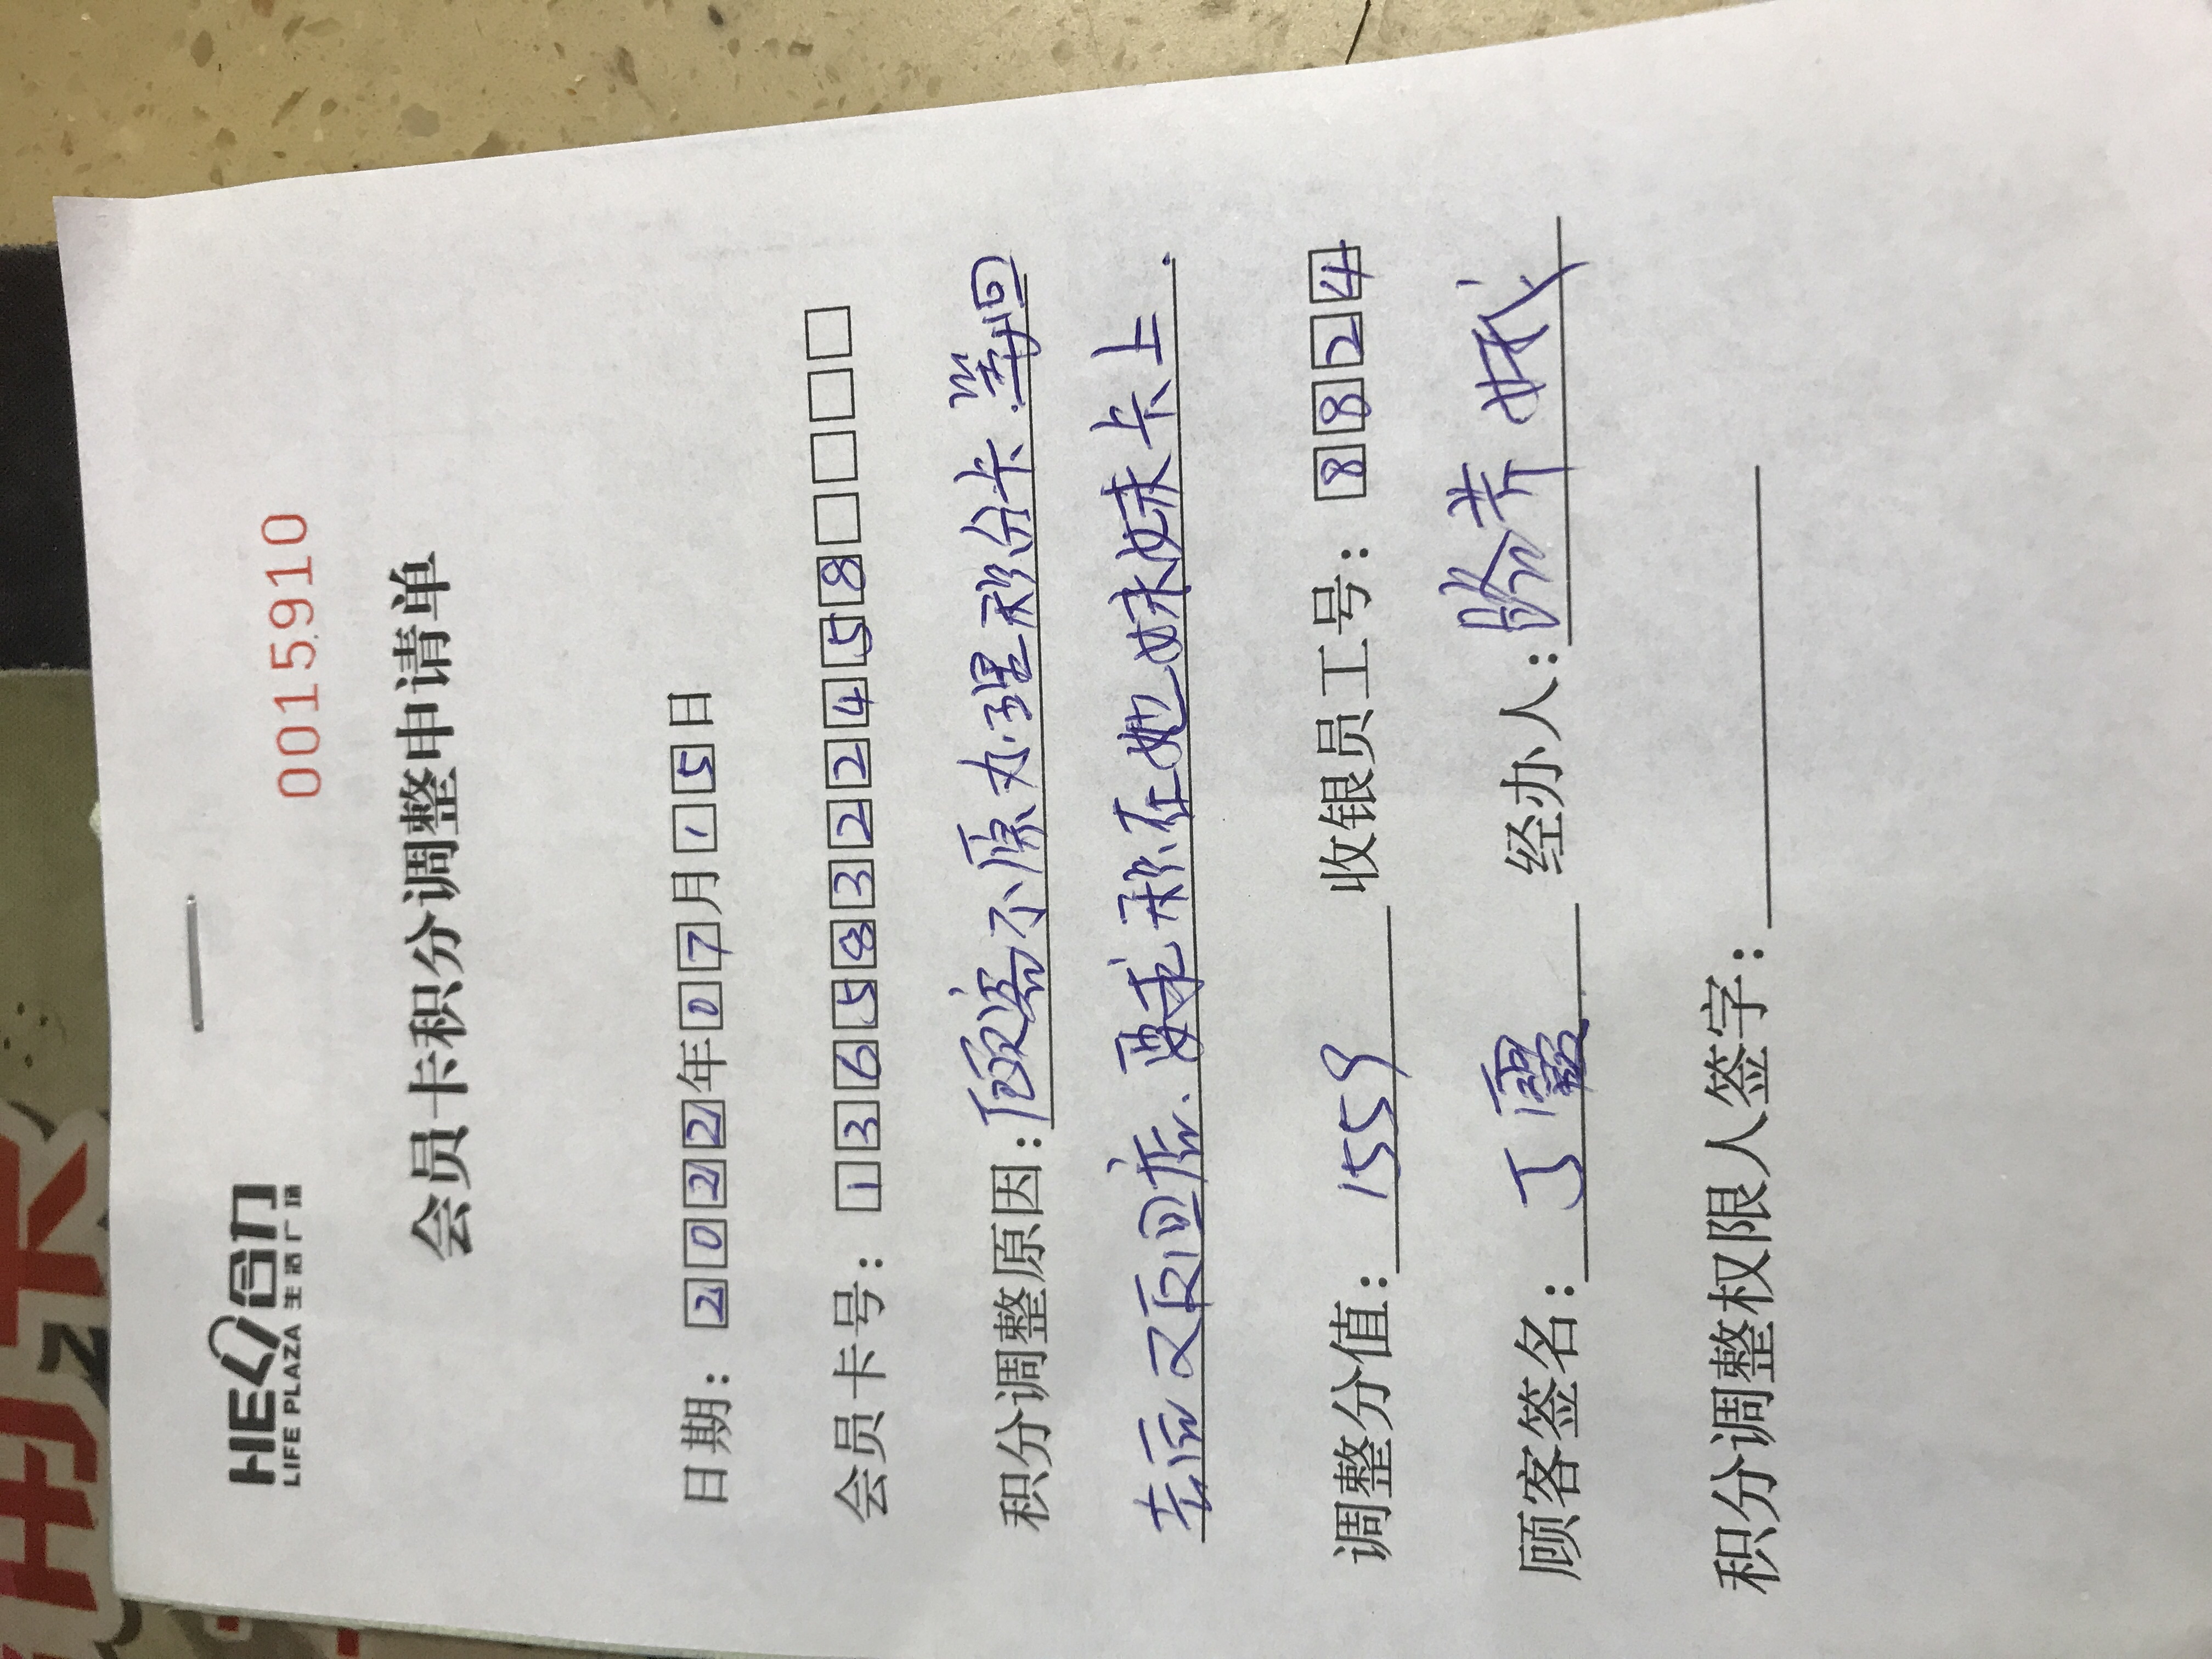 HELI合力
LIFE PLAZA 生活广场
0015910
会员卡积分调整申请单
日期：2022年07月15日
会员卡号：13658322458
积分调整原因：顾客不原办理积分卡.等回
去后又反回应、要求积在她妹妹卡上.
调整分值：1559 收银员工号：8824
顾客签名：丁 经办人：
积分调整权限人签字：
用卡